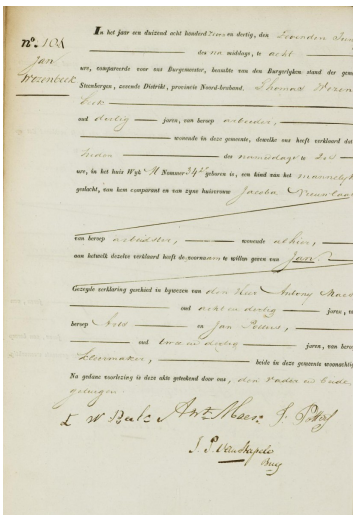 nº. 101
Jan
Wezenbeek
In het jaar een duizend acht honderd Zeven en dertig, den Zevenden Jun
des na middags, te acht
ure, compareerde voor ons Burgemeester, beambte van den Burgerlyken stand der geme
Steenbergen, zevende Distrikt, provincie Noord-braband. Thomas Wezen
beek
oud dertig jaren, van beroep arbeider,
wonende in deze gemeente, dewelke ons heeft verklaard dat
heden des namiddags te
ure, in het huis Wyk H Nommer 34 geboren is, een kind van het mannelyk
geslacht, van hem comparant en van zyne huisvrouw Jacoba
van beroep arbeidster, wonende alhier,
aan hetwelk dezelve verklaard heeft de voornamen te willen geven van Jan
Gezegde verklaring geschied in bywezen van den Heer Antony Maas
oud acht en dertig jaren, va
beroep en Jan
oud twee en dertig jaren, van beroep
beide in deze gemeente woonachtig
Na gedane voorlezing is deze akte geteekend door ons, den vader en beide
getuigen